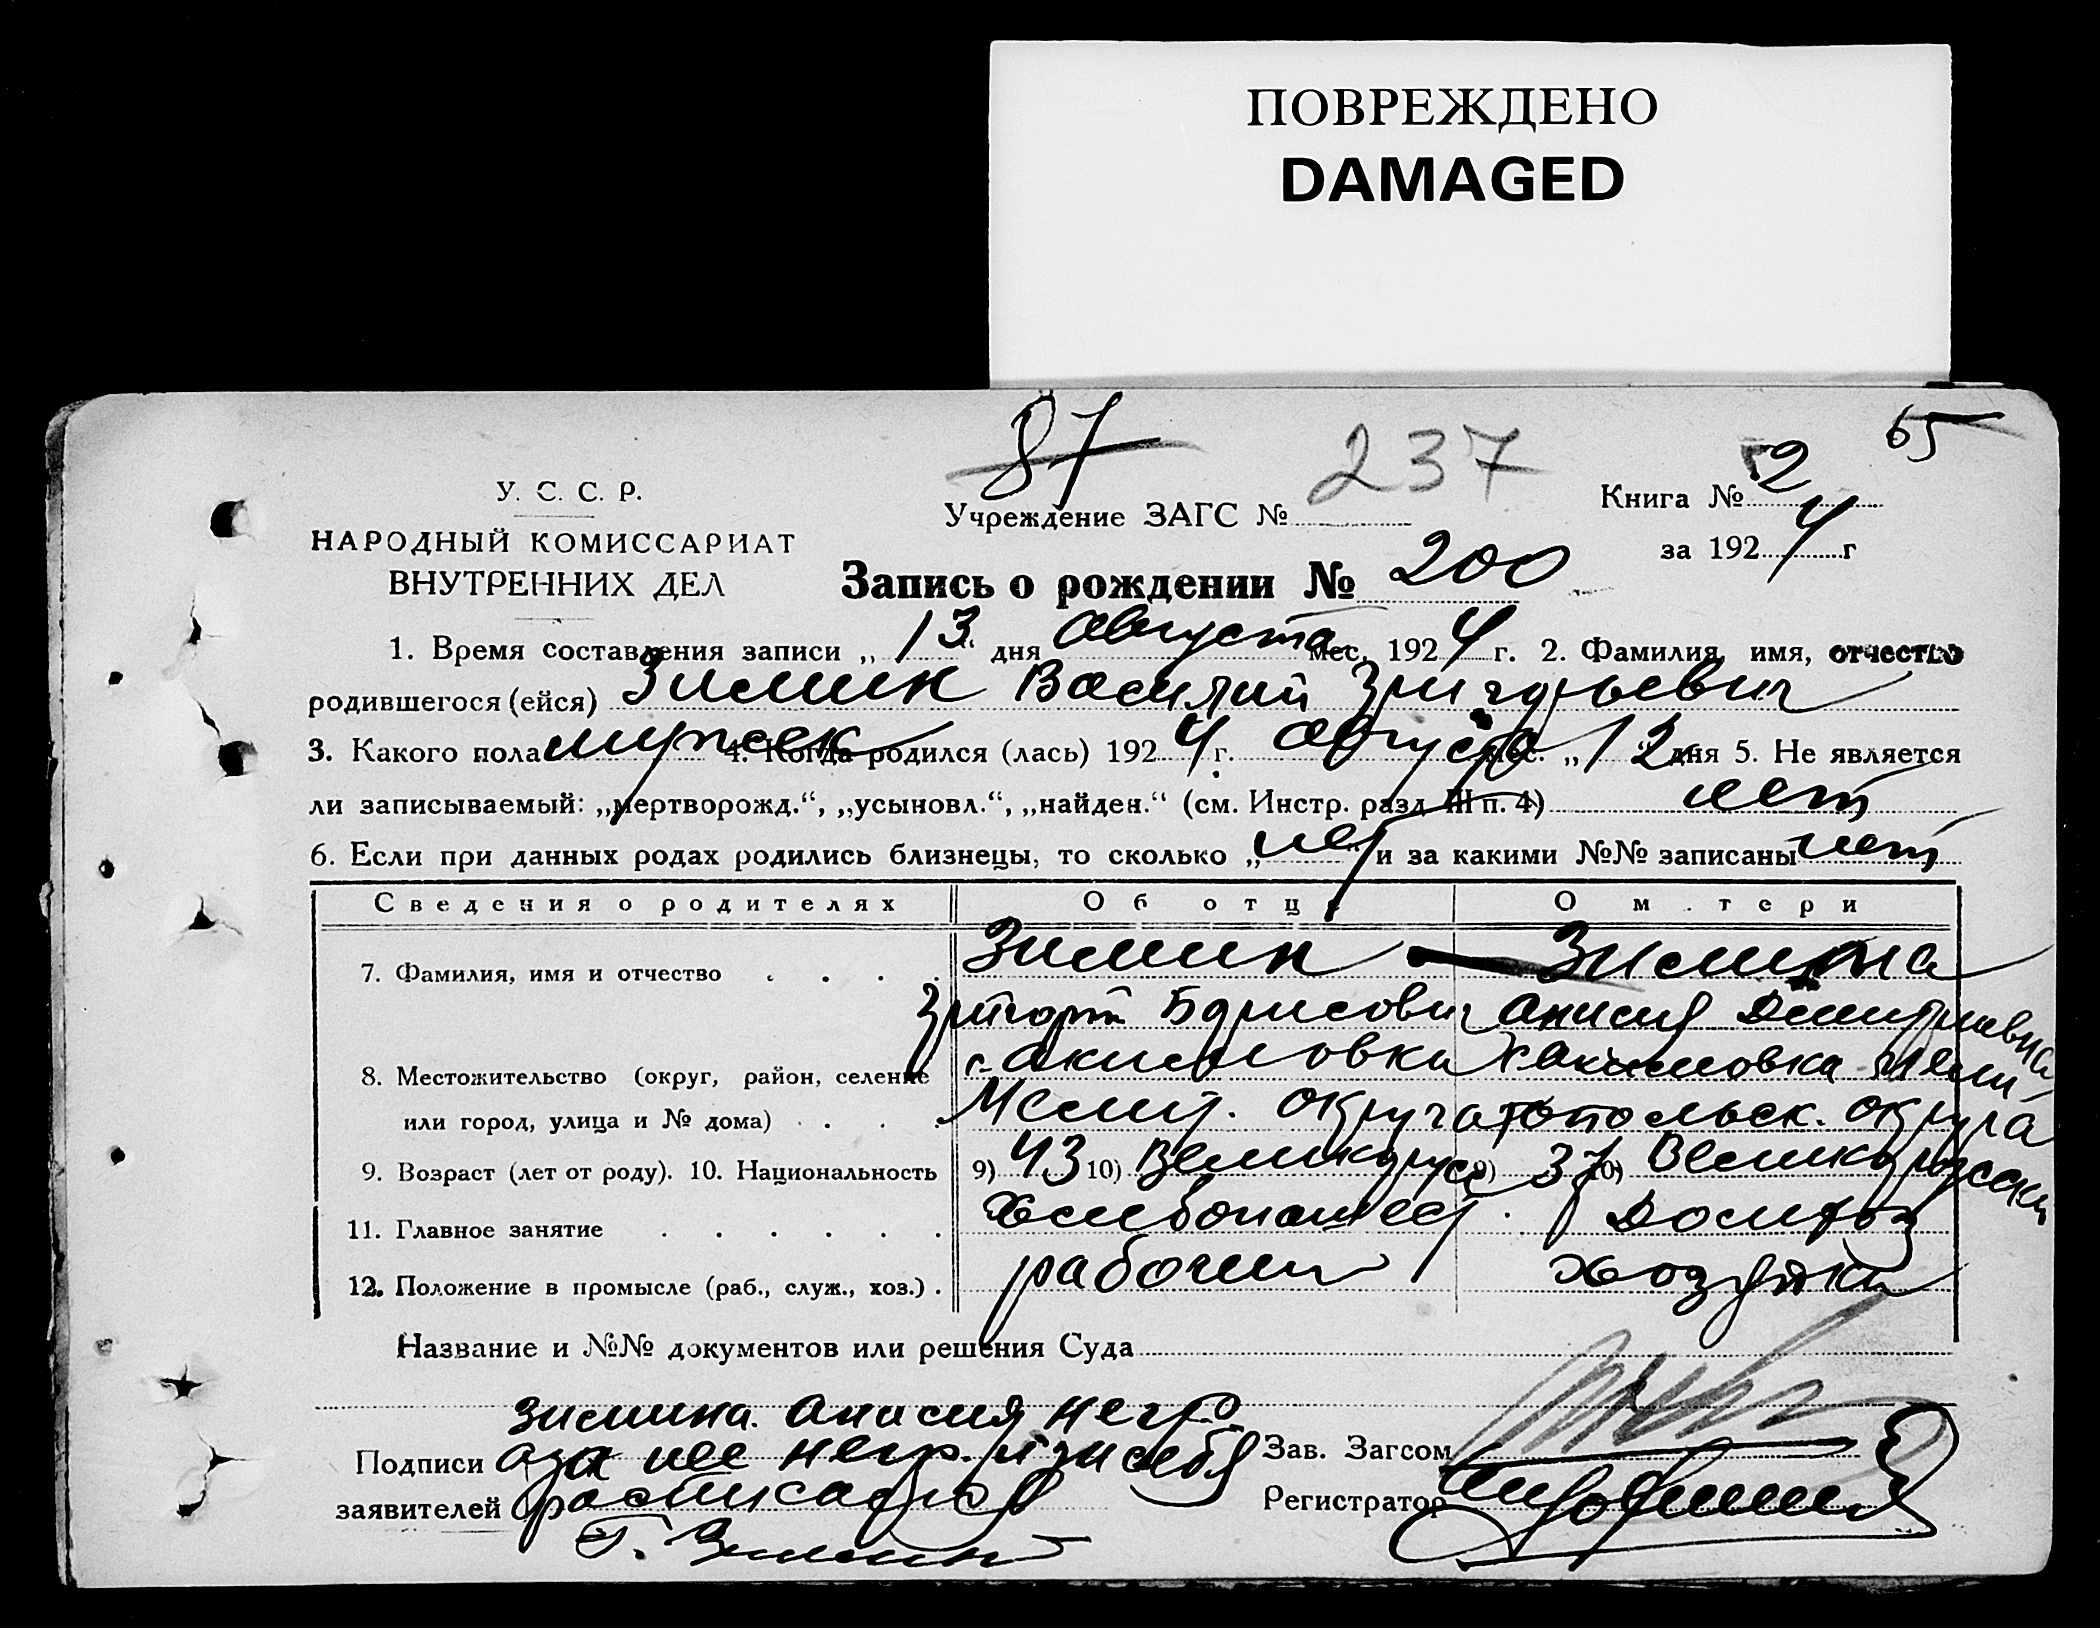 ПОВРЕЖДЕНО
DAMAGED
87
237
65
У. С. С. Р.
НАРОДНЫЙ КОМИССАРИАТ
ВНУТРЕННИХ ДЕЛ
Учреждение ЗАГС №
Книга № 2
за 1924 г
Запись о рождении № 200
1. Время составления записи „13“ дня августа мес. 1924 г. 2. Фамилия, имя, отчество
родившегося (ейся) Зимин Василий Григорьевич
3. Какого пола мужск 4. Когда родился (лась) 1924 г. августа мес. „12“ дня 5. Не является
ли записываемый: „мертворожд.“, „усыновл.“, „найден.“ (см. Инстр. разд III п. 4) нет
6. Если при данных родах родились близнецы, то сколько „нет“ и за какими №№ записаны нет
Сведения о родителях Об отце О матери
7. Фамилия, имя и отчество Зимин Зимина
Григорий Борисович Анисия Дмитриевна
8. Местожительство (округ, район, селение с. Акимовка Акимовка Мели
или город, улица и № дома) Мелит. округа топольск. округа
9. Возраст (лет от роду). 10. Национальность 9) 43 10) Великорусс 9) 37 10) Великорусская
11. Главное занятие Хлебопашест. Домохоз
12. Положение в промысле (раб., служ., хоз.) рабочий хозяйка
Название и №№ документов или решения Суда
Зимина Анисия негр.
Подписи а за нее негр. и за себя Зав. Загсом
заявителей расписался Регистратор
Г. Зимин